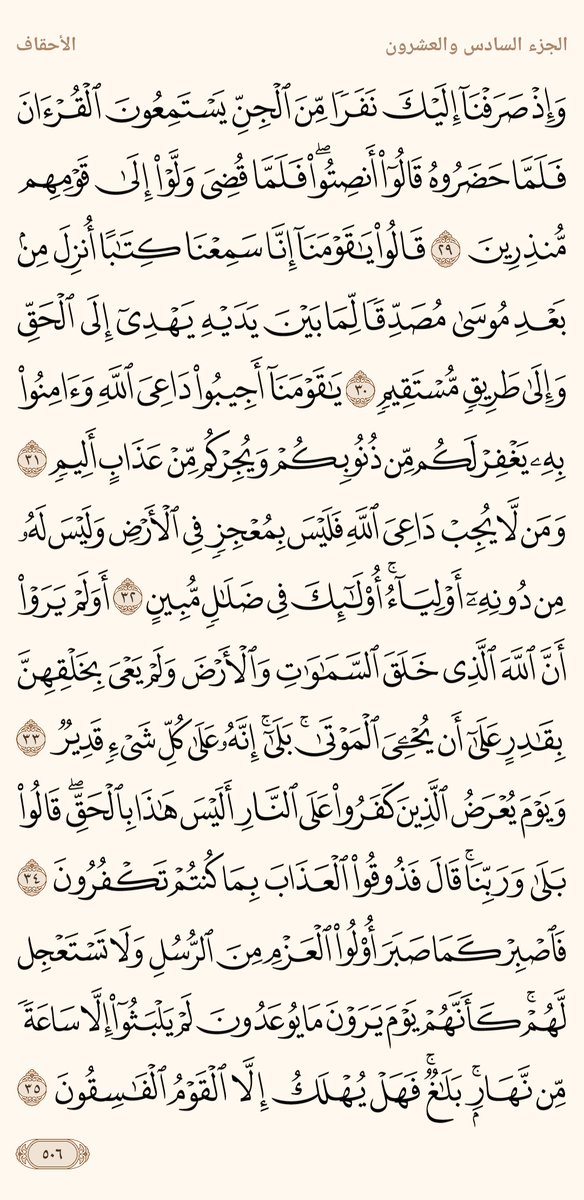 الجزء السادس والعشرون
الأحقاف
وَإِذۡ صَرَفۡنَآ إِلَيۡكَ نَفَرٗا مِّنَ ٱلۡجِنِّ يَسۡتَمِعُونَ ٱلۡقُرۡءَانَ
فَلَمَّا حَضَرُوهُ قَالُوٓاْ أَنصِتُواْۖ فَلَمَّا قُضِيَ وَلَّوۡاْ إِلَىٰ قَوۡمِهِم
مُّنذِرِينَ ٢٩ قَالُواْ يَٰقَوۡمَنَآ إِنَّا سَمِعۡنَا كِتَٰبًا أُنزِلَ مِنۢ
بَعۡدِ مُوسَىٰ مُصَدِّقٗا لِّمَا بَيۡنَ يَدَيۡهِ يَهۡدِيٓ إِلَى ٱلۡحَقِّ
وَإِلَىٰ طَرِيقٖ مُّسۡتَقِيمٖ ٣٠ يَٰقَوۡمَنَآ أَجِيبُواْ دَاعِيَ ٱللَّهِ وَءَامِنُواْ
بِهِۦ يَغۡفِرۡ لَكُم مِّن ذُنُوبِكُمۡ وَيُجِرۡكُم مِّنۡ عَذَابٍ أَلِيمٖ ٣١
وَمَن لَّا يُجِبۡ دَاعِيَ ٱللَّهِ فَلَيۡسَ بِمُعۡجِزٖ فِي ٱلۡأَرۡضِ وَلَيۡسَ لَهُۥ
مِن دُونِهِۦٓ أَوۡلِيَآءُۚ أُوْلَٰٓئِكَ فِي ضَلَٰلٖ مُّبِينٍ ٣٢ أَوَلَمۡ يَرَوۡاْ
أَنَّ ٱللَّهَ ٱلَّذِي خَلَقَ ٱلسَّمَٰوَٰتِ وَٱلۡأَرۡضَ وَلَمۡ يَعۡيَ بِخَلۡقِهِنَّ
بِقَٰدِرٍ عَلَىٰٓ أَن يُحۡـِۧيَ ٱلۡمَوۡتَىٰۚ بَلَىٰٓۚ إِنَّهُۥ عَلَىٰ كُلِّ شَيۡءٖ قَدِيرٞ ٣٣
وَيَوۡمَ يُعۡرَضُ ٱلَّذِينَ كَفَرُواْ عَلَى ٱلنَّارِ أَلَيۡسَ هَٰذَا بِٱلۡحَقِّۖ قَالُواْ
بَلَىٰ وَرَبِّنَاۚ قَالَ فَذُوقُواْ ٱلۡعَذَابَ بِمَا كُنتُمۡ تَكۡفُرُونَ ٣٤
فَٱصۡبِرۡ كَمَا صَبَرَ أُوْلُواْ ٱلۡعَزۡمِ مِنَ ٱلرُّسُلِ وَلَا تَسۡتَعۡجِل
لَّهُمۡۚ كَأَنَّهُمۡ يَوۡمَ يَرَوۡنَ مَا يُوعَدُونَ لَمۡ يَلۡبَثُوٓاْ إِلَّا سَاعَةٗ
مِّن نَّهَارِۭۚ بَلَٰغٞۚ فَهَلۡ يُهۡلَكُ إِلَّا ٱلۡقَوۡمُ ٱلۡفَٰسِقُونَ ٣٥
٥٠٦